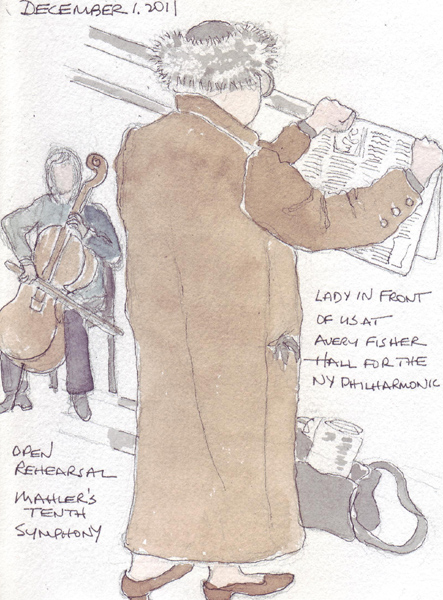 DECEMBER 1, 2011
LADY IN FRONT
OF US AT
AVERY FISHER
HALL FOR THE
NY PHILHARMONIC
OPEN
REHEARSAL
MAHLER'S
TENTH
SYMPHONY